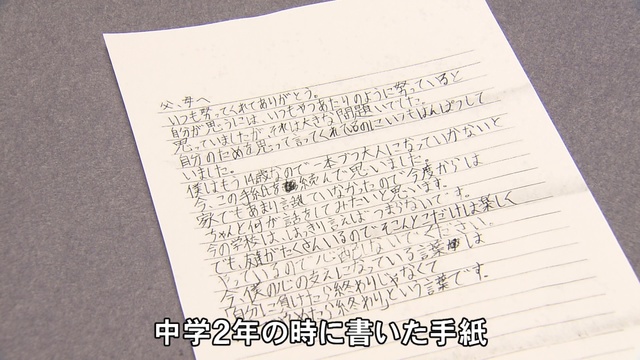 父、母へ
いつも怒ってくれてありがとう。
自分が思うには、いつもやつあたりのように怒っていると
思っていましたが、それは大きな問題いでした。
自分のためを思って言ってくれてるのにいつもはんぱつして
いました。
僕はもう14歳なので一本フラ大人になっていかないと
今、この手紙を続んで思いました。
家でもあまり話していなかったので今度からは
ちゃんと何か話をしてみたいと思います。
今の学校は、はっきり言えばつまらないです。
でも、友達がたくさんいるのでそこんとこだけは楽しく
やっているので心配ないでください。
今、僕の心の支えになっている言葉は
「自分に負けたら終わりじゃなくて
やめたら終わり」という言葉です。
中学2年の時に書いた手紙